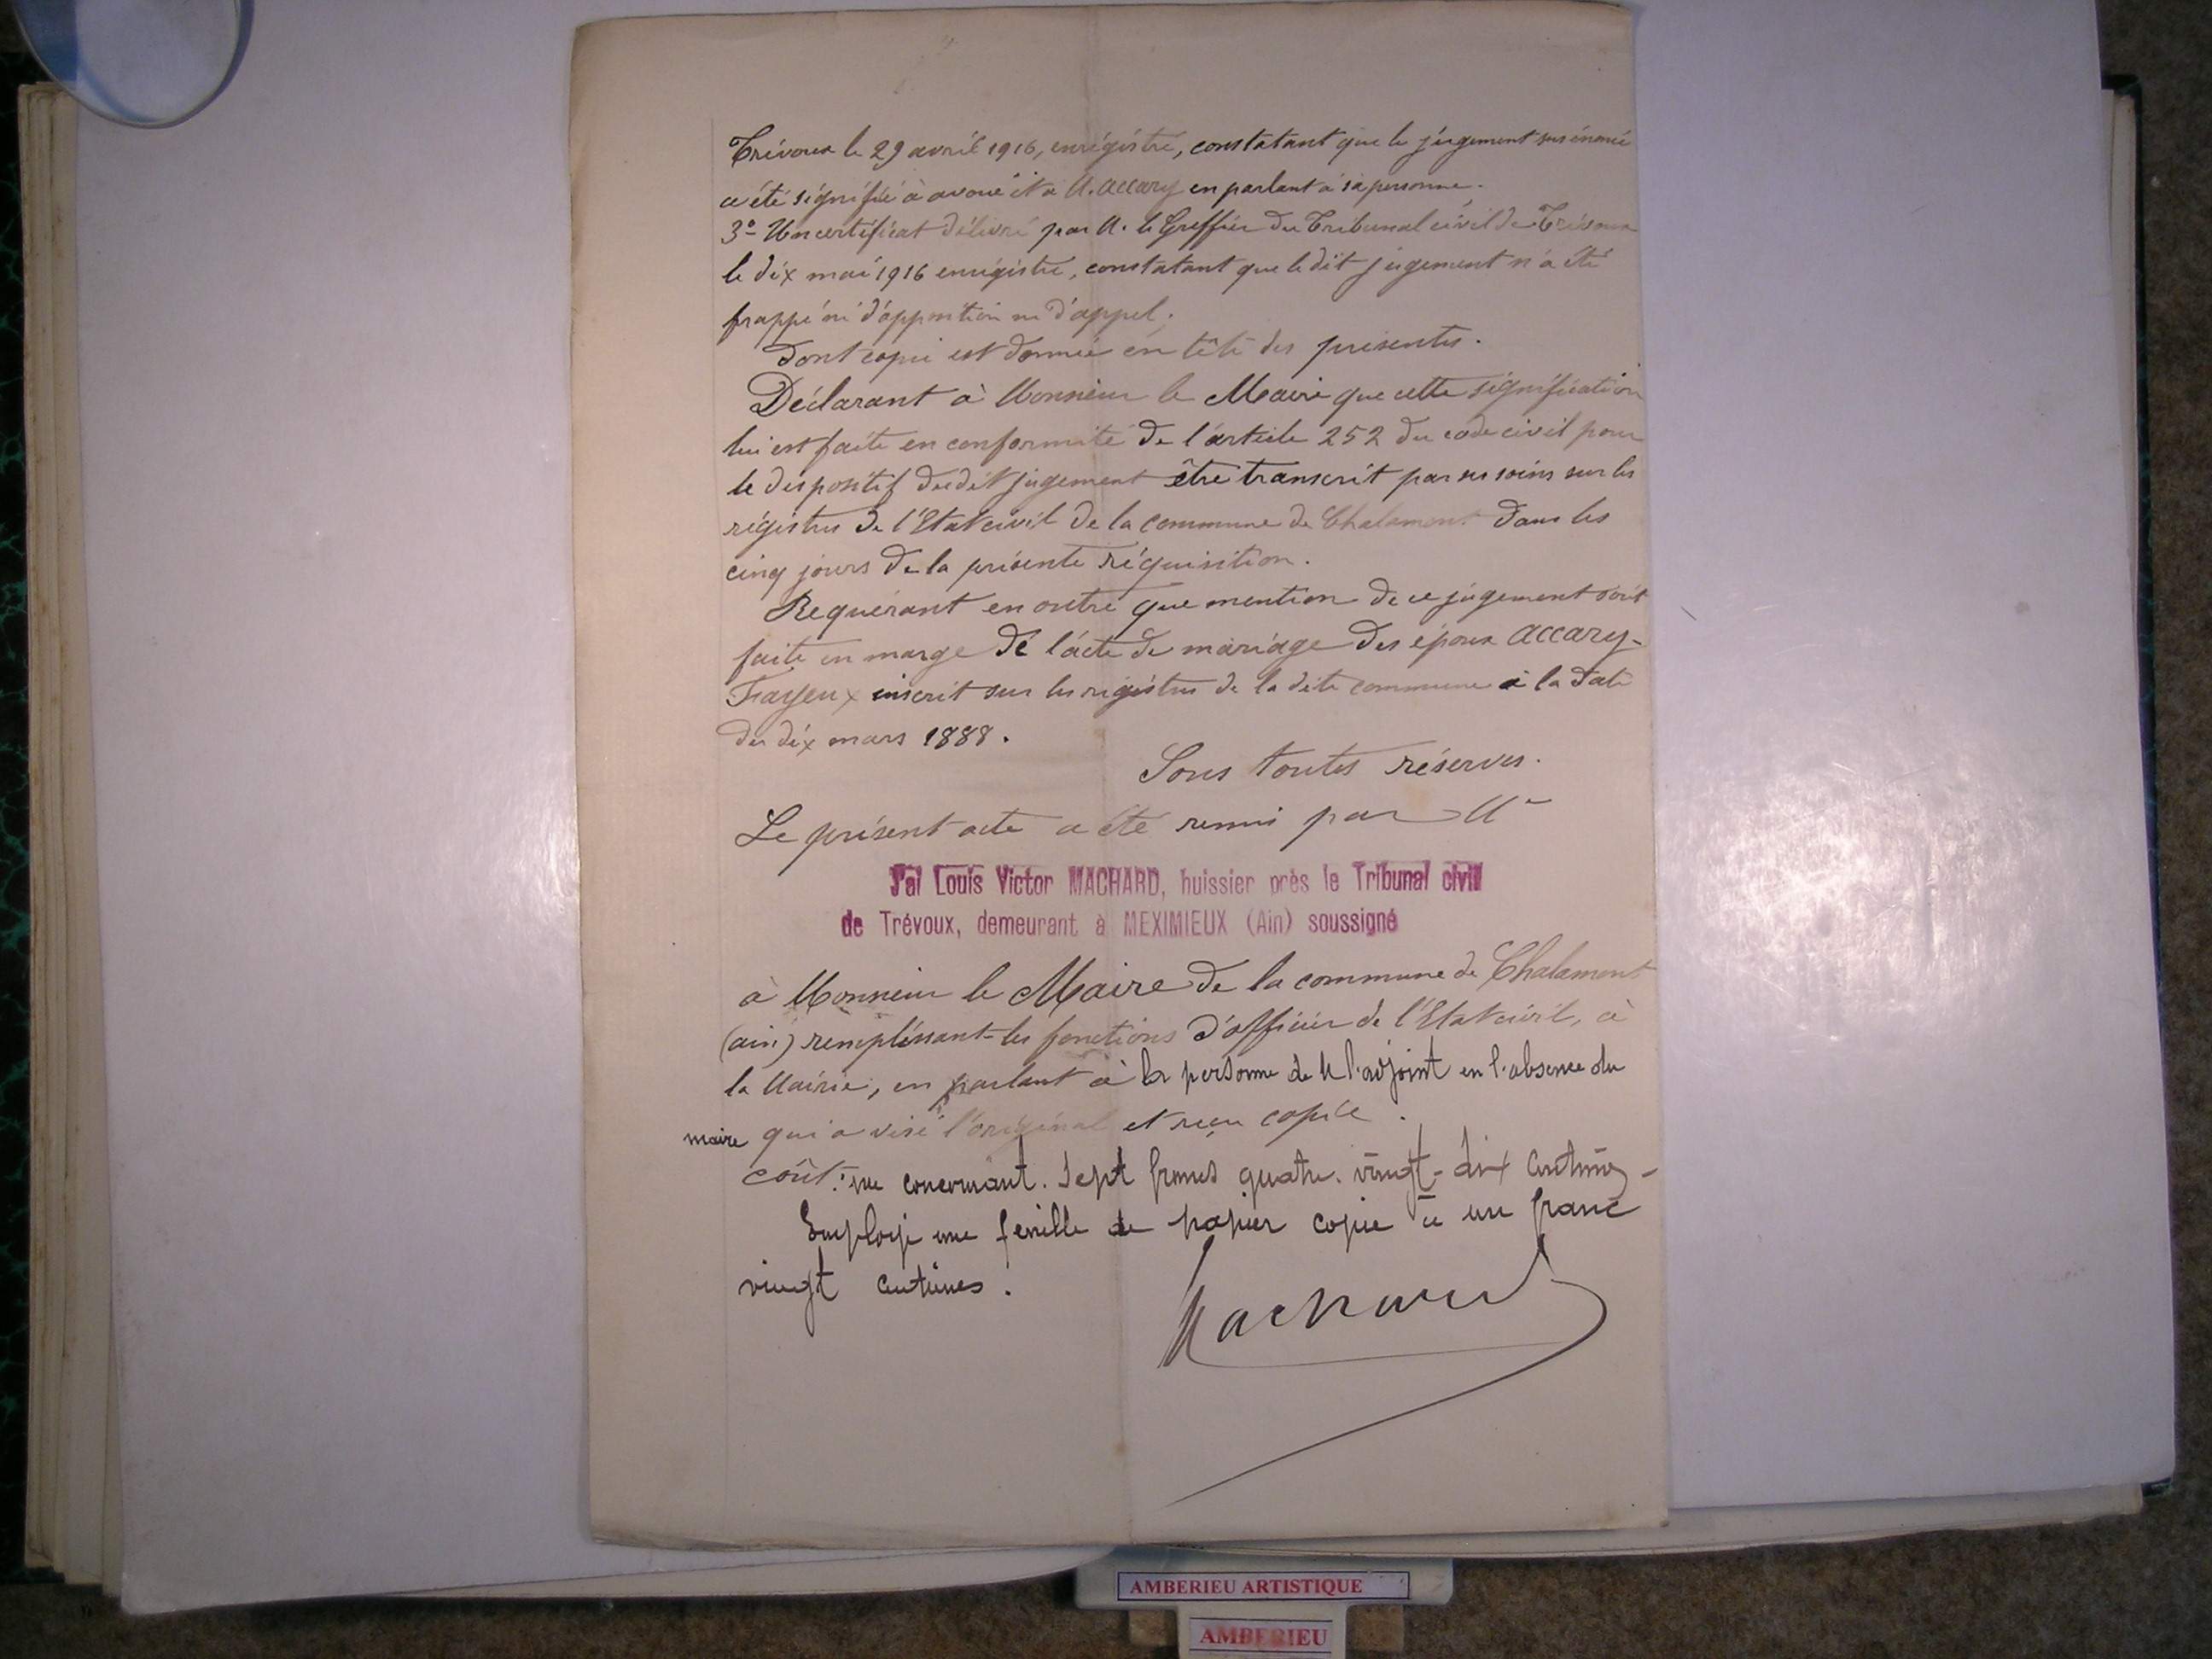 Trévoux le 29 avril 1916, enrégistré, constatant que le jugement sus énoncé
a été signifié à avoué et à M. Accary en parlant à sa personne.
3º- Un certificat délivré par M. le Greffier du Tribunal civil de Trévoux
le dix mai 1916 enrégistré, constatant que le dit jugement n'a été
frappé ni d'opposition ni d'appel.
Dont copie est donnée en tête des présentes.
Déclarant à Monsieur le Maire que cette signification
lui est faite en conformité de l'article 252 du code civil pour
le dispositif dudit jugement être transcrit par ses soins sur les
régistres de l'Etat civil de la commune de Chalamont dans les
cinq jours de la présente réquisition.
Requérant en outre que mention de ce jugement soit
faite en marge de l'acte de mariage des époux Accary-
Fayeux inscrit sur les registres de la dite commune à la date
du dix mars 1888.
Sous toutes réserves.
Le présent acte a été remis par Me
J'ai Louis Victor MACHARD, huissier près le Tribunal civil
de Trévoux, demeurant à MEXIMIEUX (Ain) soussigné
à Monsieur le Maire de la commune de Chalamont
(ain) remplissant les fonctions d'officier de l'Etat civil, à
la Mairie, en parlant à la personne de M l'adjoint en l'absence du
maire qui a visé l'original et reçu copie.
coût: me concernant. Sept francs quatre-vingt-dix centimes-
Employé une feuille de papier copie à un franc
vingt centimes.
Machard
AMBERIEU ARTISTIQUE
AMBERIEU